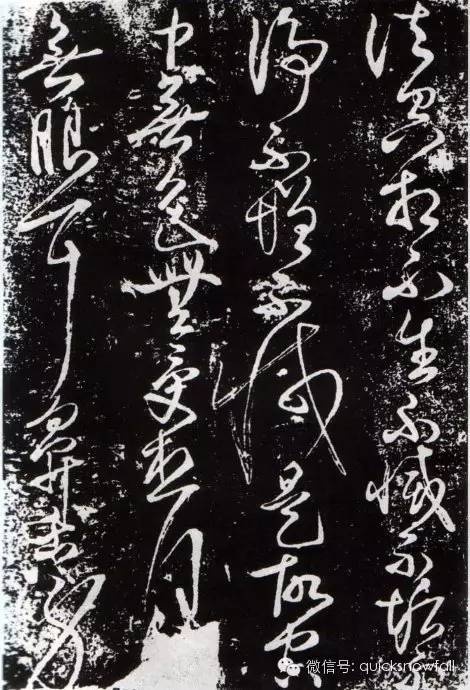 法空相不生不滅不垢不
淨不增不減是故空
中無色無受想行
無眼耳鼻舌身
微信号: quicksnowfall